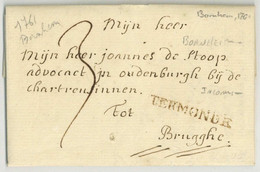 Mijn heer
Mijn heer joannes de Stoop
advocaet in oudenburgh bij de
chartreusinnen.
Tot
Brugghe
3
TERMONDE
1761
Bornhem, 1761